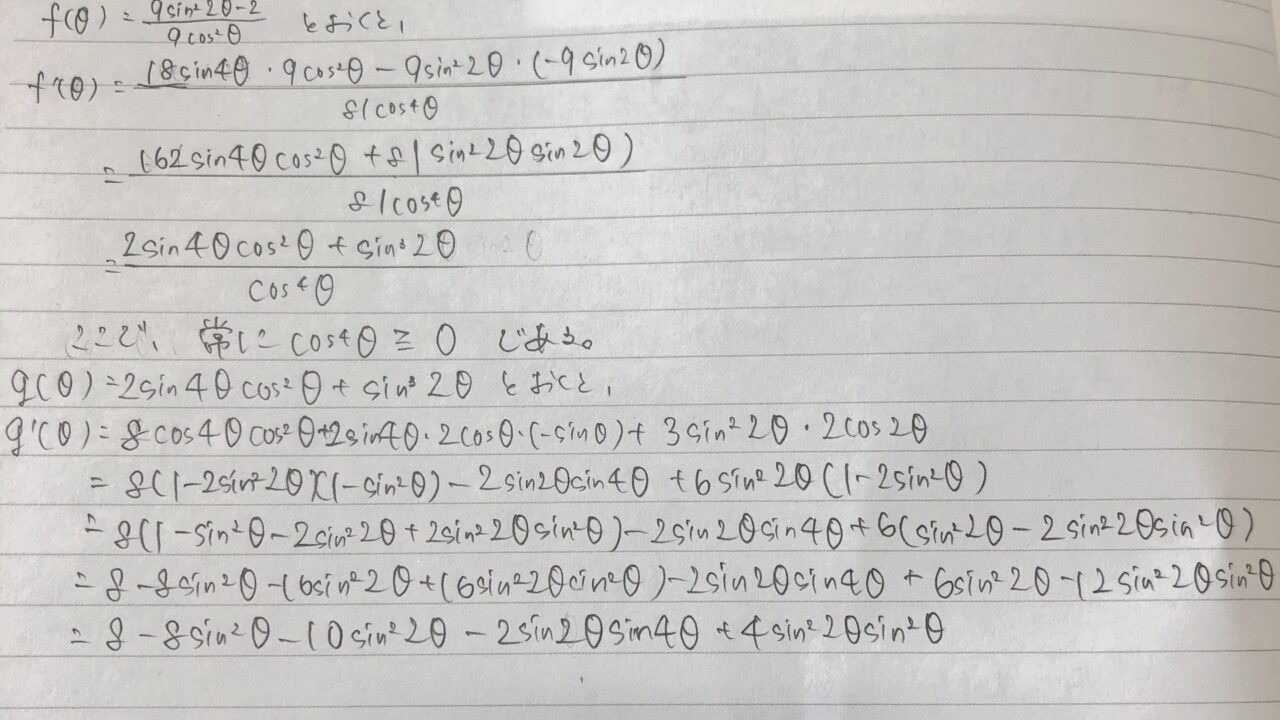 f(θ) = (9sin²2θ-2)/(9cos²θ) とおくと,
f'(θ) = (18sin4θ・9cos²θ - 9sin²2θ・(-9sin2θ))/(81cos⁴θ)
= (162sin4θcos²θ + 81sin²2θsin2θ))/(81cos⁴θ)
= (2sin4θcos²θ + sin³2θ)/(cos⁴θ)
ここで、常に cos⁴θ ≧ 0 である。
g(θ) = 2sin4θcos²θ + sin³2θ とおくと,
g'(θ) = 8cos4θcos²θ+2sin4θ・2cosθ・(-sinθ) + 3sin²2θ・2cos2θ
= 8(1-2sin²2θ)(1-sin²θ) - 2sin2θsin4θ + 6sin²2θ(1-2sin²θ)
= 8(1-sin²θ-2sin²2θ+2sin²2θsin²θ)-2sin2θsin4θ+6(sin²2θ-2sin²2θsin²θ)
= 8-8sin²θ-16sin²2θ+(16sin²2θsin²θ)-2sin2θsin4θ+6sin²2θ-12sin²2θsin²θ
= 8-8sin²θ-10sin²2θ-2sin2θsin4θ+4sin²2θsin²θ